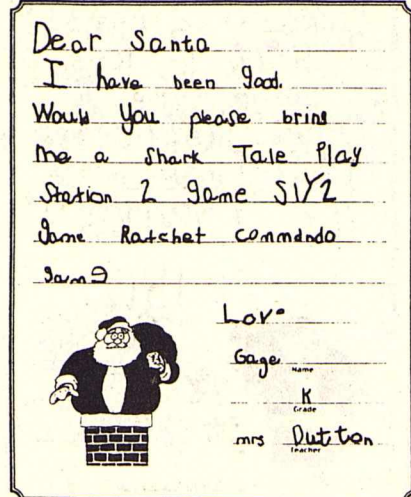 Dear Santa
I have been good.
Would you please bring
me a Shark Tale Play
Station 2 game SlY2
game Ratchet commando
game
Love
Gage
Name
K
Grade
mrs Dutton
teacher